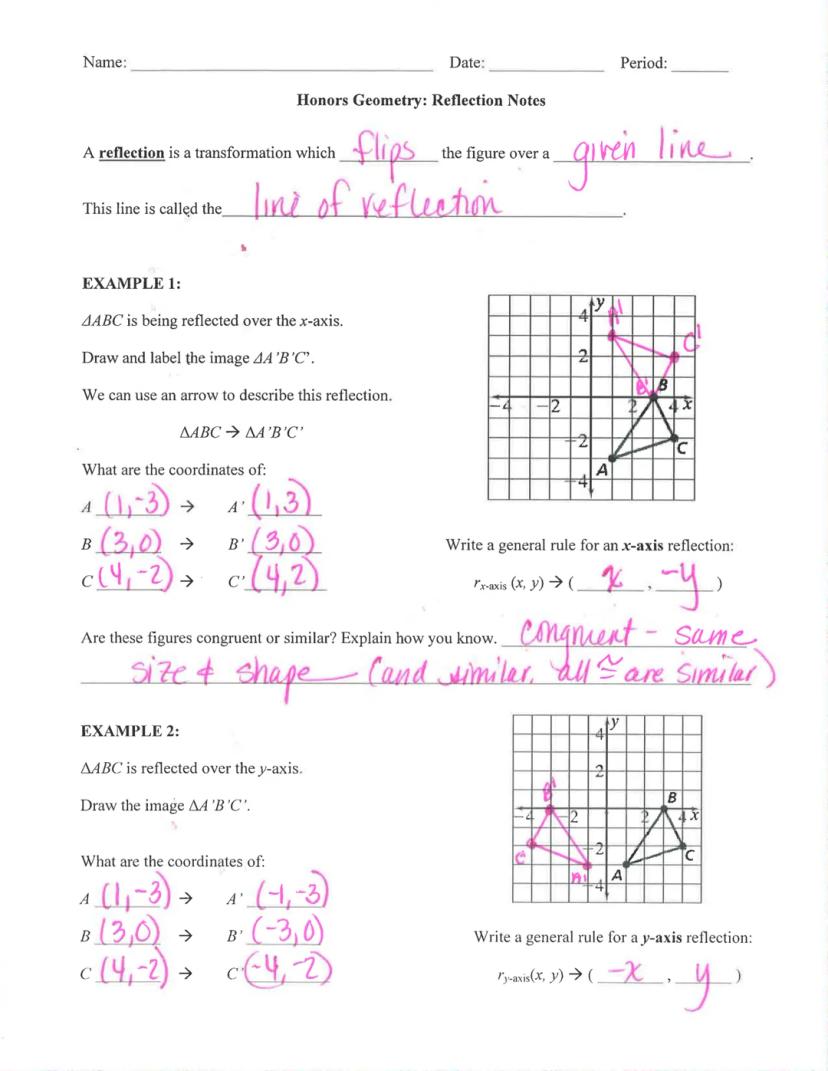 Name: ____________ Date: ____________ Period: ______
Honors Geometry: Reflection Notes
A reflection is a transformation which flips the figure over a given line.
This line is called the line of reflection.
EXAMPLE 1:
ΔABC is being reflected over the x-axis.
Draw and label the image ΔA'B'C'.
We can use an arrow to describe this reflection.
ΔABC → ΔA'B'C'
What are the coordinates of:
A (1,-3) → A' (1,3)
B (3,0) → B' (3,0)
C (4,-2) → C' (4,2)
y
4
A'
C'
2
B'
B
-4 -2 2 4 x
-2
C
A
-4
Write a general rule for an x-axis reflection:
r x-axis (x, y) → ( x , -y )
Are these figures congruent or similar? Explain how you know. Congruent - same
size & shape (and similar, all ≅ are similar)
EXAMPLE 2:
ΔABC is reflected over the y-axis.
Draw the image ΔA'B'C'.
What are the coordinates of:
A (1,-3) → A' (-1,-3)
B (3,0) → B' (-3,0)
C (4,-2) → C' (-4,-2)
y
4
2
B'
B
-4 -2 2 4 x
-2
C'
C
A'
A
-4
Write a general rule for a y-axis reflection:
r y-axis(x, y) → ( -x , y )